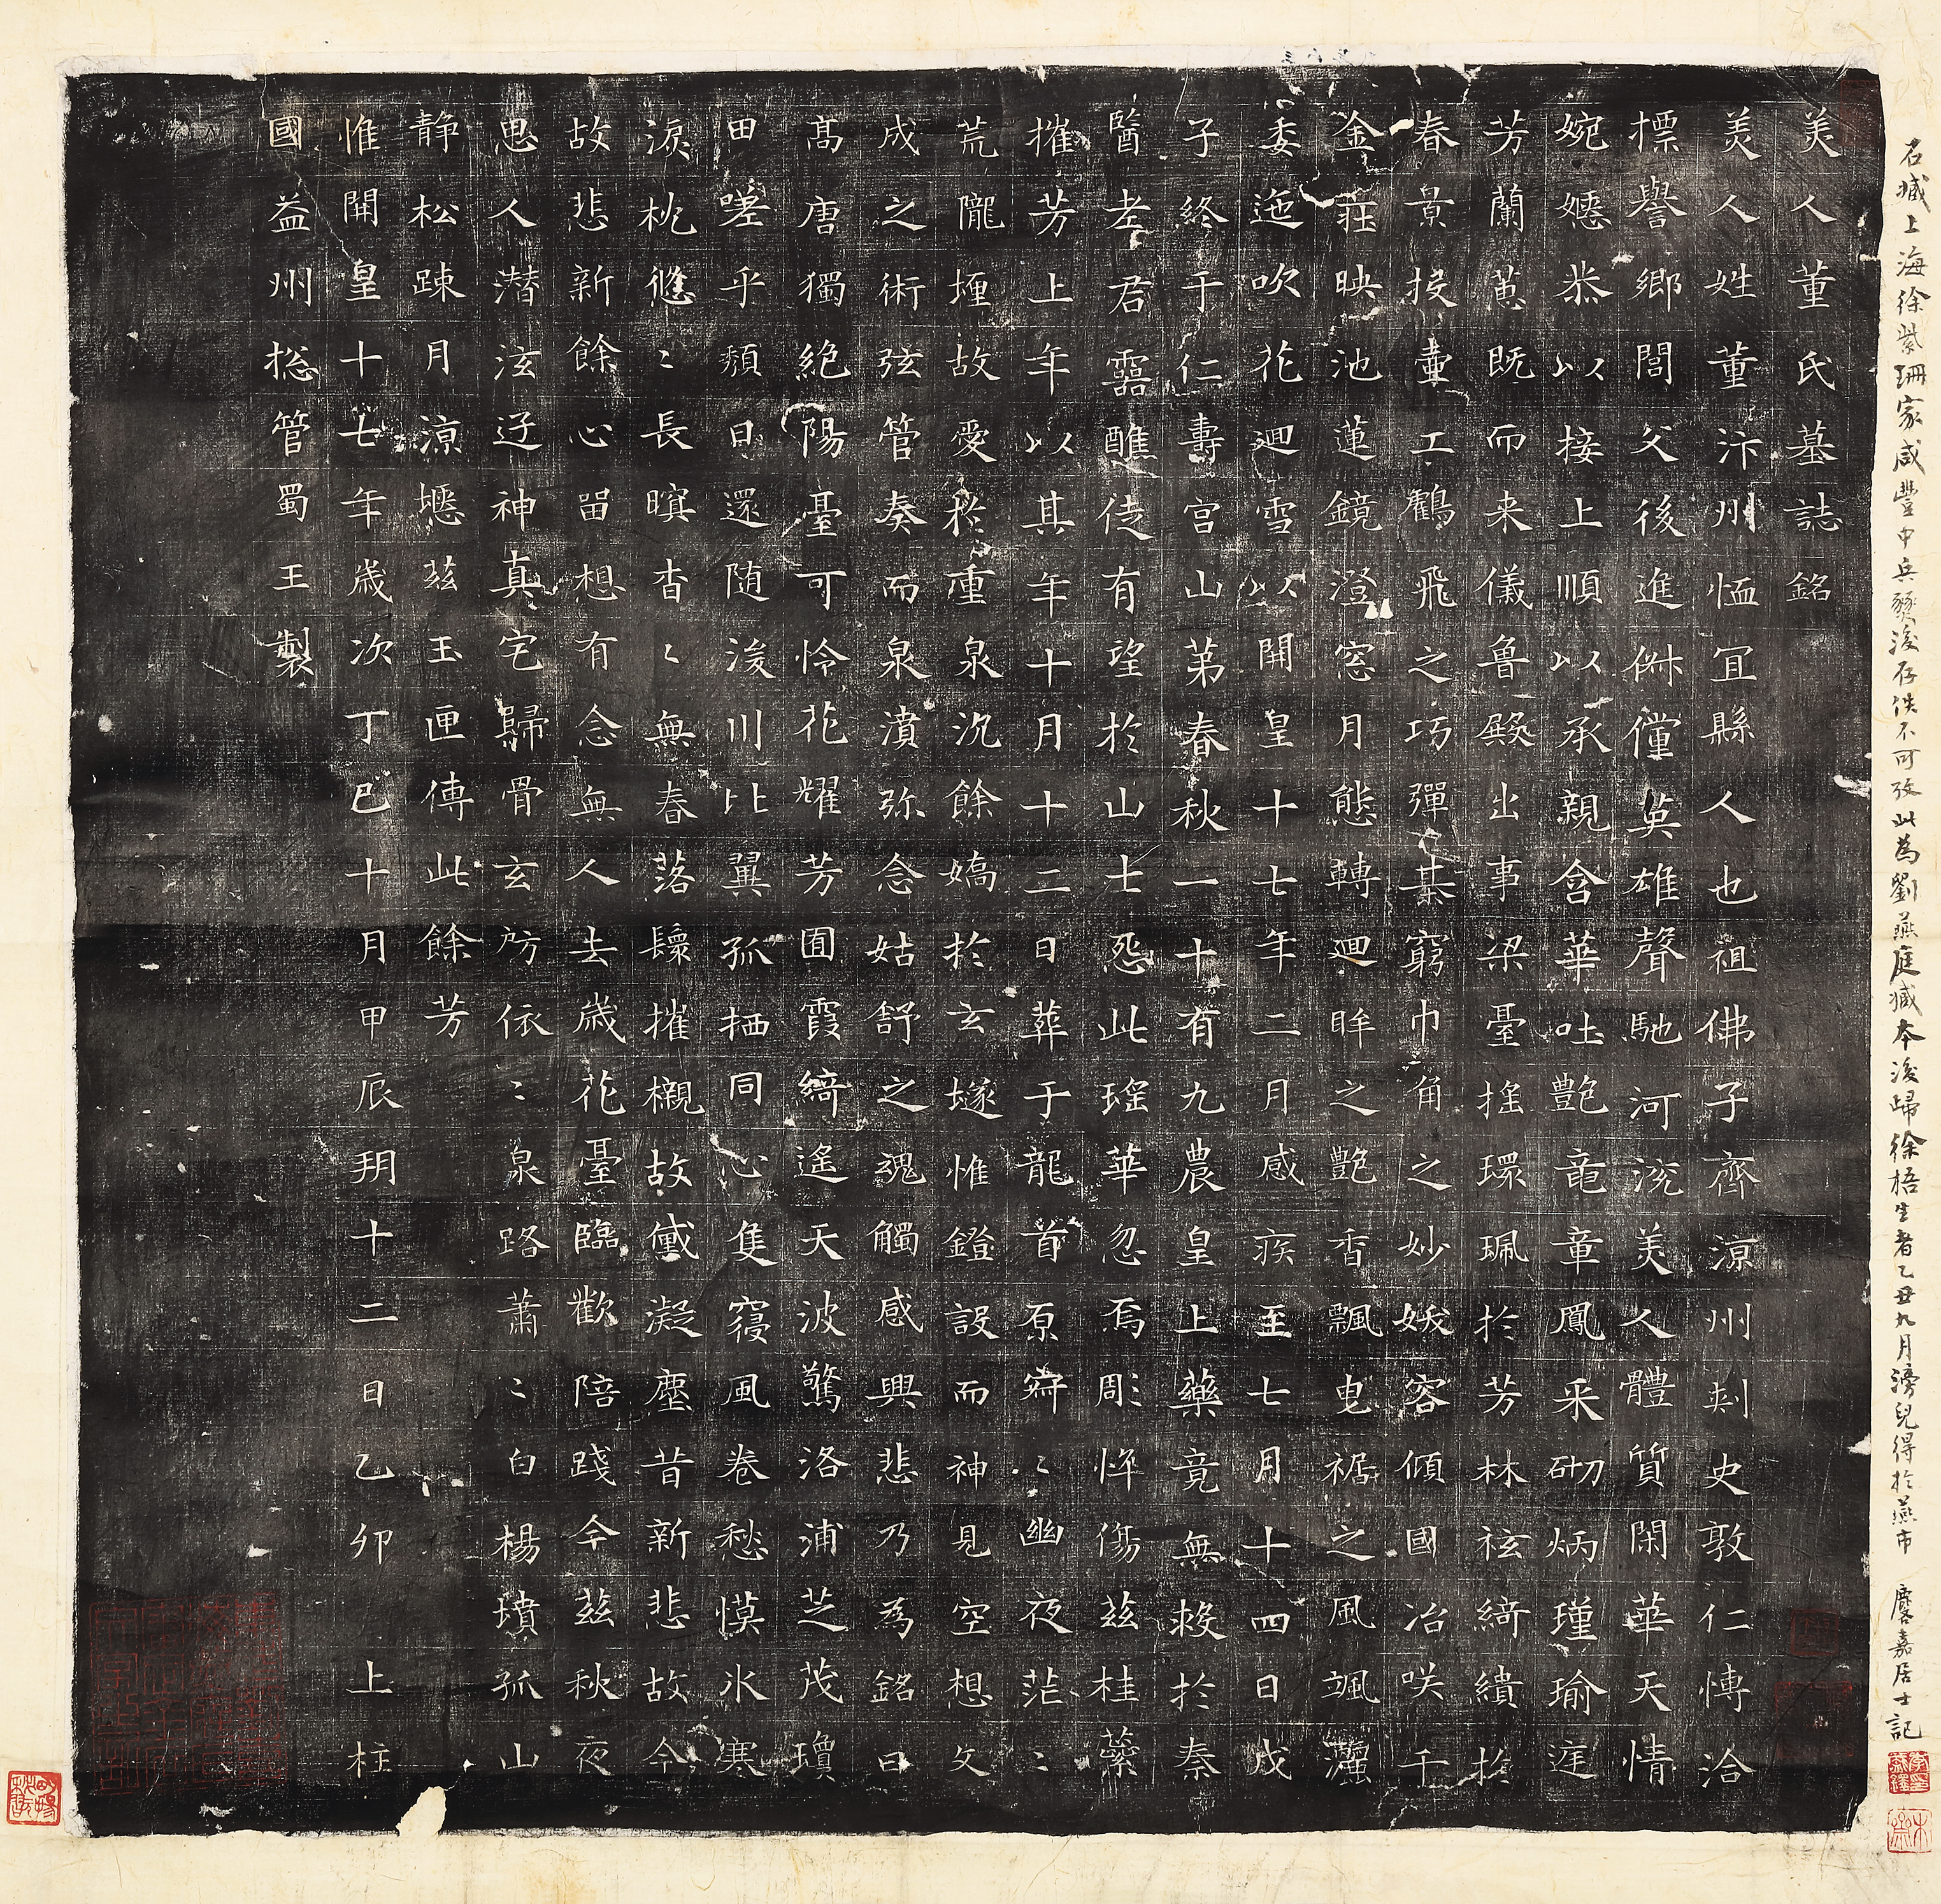 石臧上海徐紫珊家咸豐中兵燹後存佚不可攷此為劉燕庭臧本後歸徐梧生者乙丑九月滂兒得於燕市 麐嘉居士記
美人董氏墓誌銘
美人姓董汴州恤宜縣人也祖佛子齊涼州刾史敦仁博洽
摽譽鄉閭父後進俶儻英雄聲馳河沇美人體質閑華天情
婉嫕恭以接上順以承親含華吐艷竜章鳳采砌炳瑾瑜庭
芳蘭蕙既而来儀魯殿出事梁臺搖環珮於芳林袨綺繢於
春景投壷工鶴飛之巧彈棊窮巾角之妙妖容傾國冶咲千
金莊映池蓮鏡澄窓月態轉迴眸之艷香飄曳裾之風颯灑
委迤吹花迴雪以開皇十七年二月感疾至七月十四日戊
子終于仁壽宮山第春秋一十有九農皇上藥竟無救於秦
醫老君靈醮徒有望於山士怨此瑤華忽焉彫悴傷茲桂蘂
摧芳上年以其年十月十二日葬于龍首原寂〻幽夜茫〻
荒隴埋故愛於重泉沉餘嬌於玄墜惟鐙設而神見空想文
成之術弦管奏而泉濆弥念姑舒之魂觸感興悲乃為銘曰
高唐獨絕陽臺可怜花耀芳囿霞綺遙天波驚洛浦芝茂瓊
田嗟乎頹日還隨浚川比翼孤栖同心隻寢風卷愁慔冰寒
淚枕悠〻長暝杳〻無春落鬟摧櫬故黛凝塵昔新悲故今
故悲新餘心留想有念無人去歲花臺臨歡陪踐今茲秋夜
思人潛泫迂神真宅歸骨玄房依〻泉路蕭〻白楊墳孤山
静松踈月涼瘞茲玉匣傳此餘芳
惟開皇十七年歲次丁巳十月甲辰朔十二日乙卯 上柱
國益州捴管蜀王製